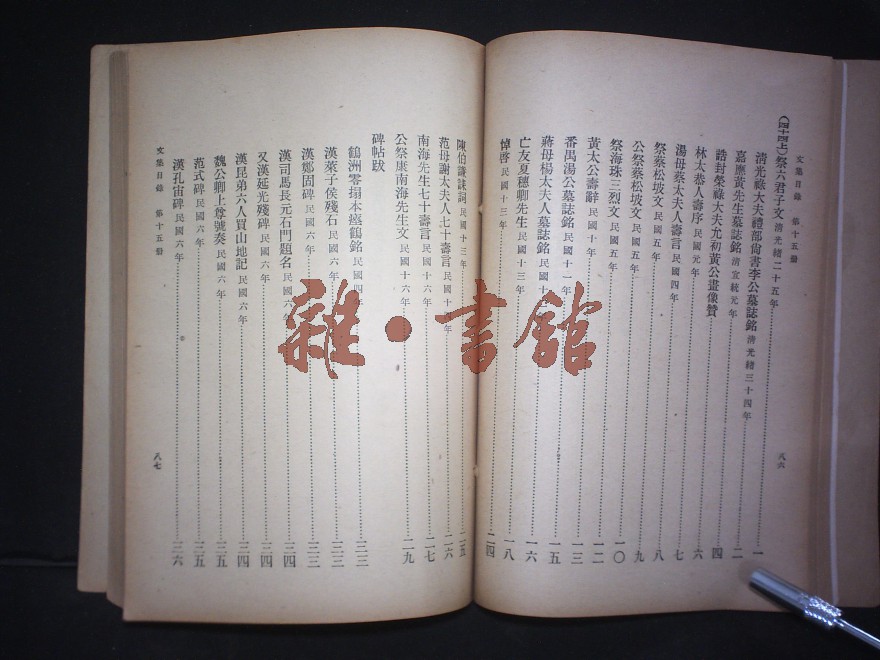 文集目錄 第十五册
(四十四上)祭六君子文 清光緒二十五年 一
清光祿大夫禮部尚書李公墓誌銘 清光緒三十四年 一
嘉應黃先生墓誌銘 清宣統元年 二
誥封榮祿大夫允初黃公畫像贊 四
林太恭人壽序 民國元年 六
湯母蔡太夫人壽言 民國四年 七
祭蔡松坡文 民國五年 八
公祭蔡松坡文 民國五年 九
祭海珠三烈文 民國五年 一〇
黃太公壽辭 民國十年 一二
番禺湯公墓誌銘 民國十一年 一三
蔣母楊太夫人墓誌銘 民國十 年 一五
亡友夏穗卿先生 民國十三年 一六
悼啓 民國十三年 一八
二四
八六
陳伯謙誄詞 民國十三年 二五
范母謝太夫人七十壽言 民國十 年 二六
南海先生七十壽言 民國十六年 二七
公祭康南海先生文 民國十六年 二九
碑帖跋
鶴洲零搨本瘞鶴銘 民國四年 三三
漢萊子侯殘石 民國六年 三三
漢鄭固碑 民國六年 三三
漢司馬長元石門題名 民國六年 三四
又漢延光殘碑 民國六年 三四
漢昆弟六人買山地記 民國六年 三四
魏公卿上尊號奏 民國六年 三五
范式碑 民國六年 三五
漢孔宙碑 民國六年 三六
文集目錄 第十五册
八七
雜·書館